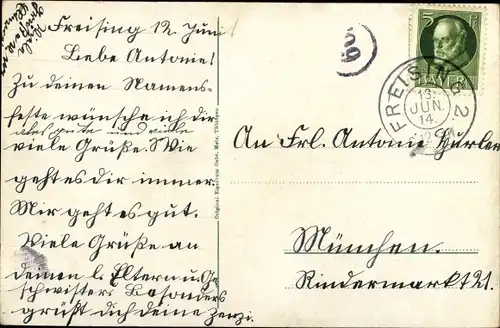 Freising 12. Juni
Liebe Antonie!
Zu deinen Namens-
feste wünsche ich dir
alles gute und viele
viele Grüße. Wie
geht es dir immer.
Mir geht es gut.
Viele Grüße an
deinen l. Eltern u. Ge
schwister. Besonders
grüßt dich deine Zenzi.
69
5
BAYERN
FREISING 2
13.
JUN.
14.
An Frl. Antonie Hurler
München.
Rindermarkt 21.